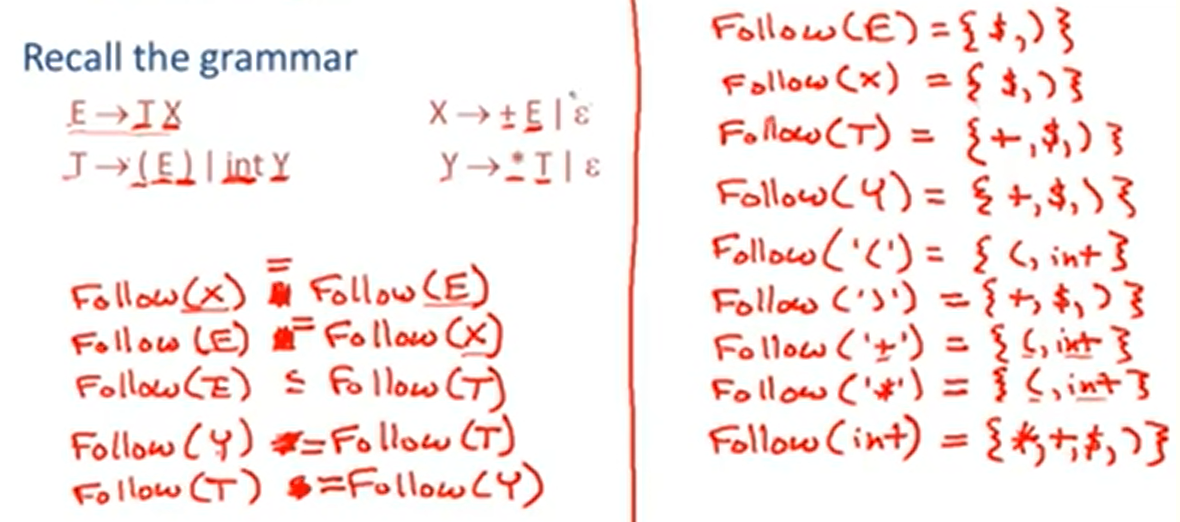 Recall the grammar
E → T X    X → + E | ε
T → ( E ) | int Y    Y → * T | ε
Follow(X) = Follow(E)
Follow(E) = Follow(X)
Follow(E) ⊆ Follow(T)
Follow(Y) = Follow(T)
Follow(T) = Follow(Y)
Follow(E) = { $, ) }
Follow(X) = { $, ) }
Follow(T) = { +, $, ) }
Follow(Y) = { +, $, ) }
Follow('(') = { (, int }
Follow(')') = { +, $, ) }
Follow('+') = { (, int }
Follow('*') = { (, int }
Follow(int) = { *, +, $, ) }